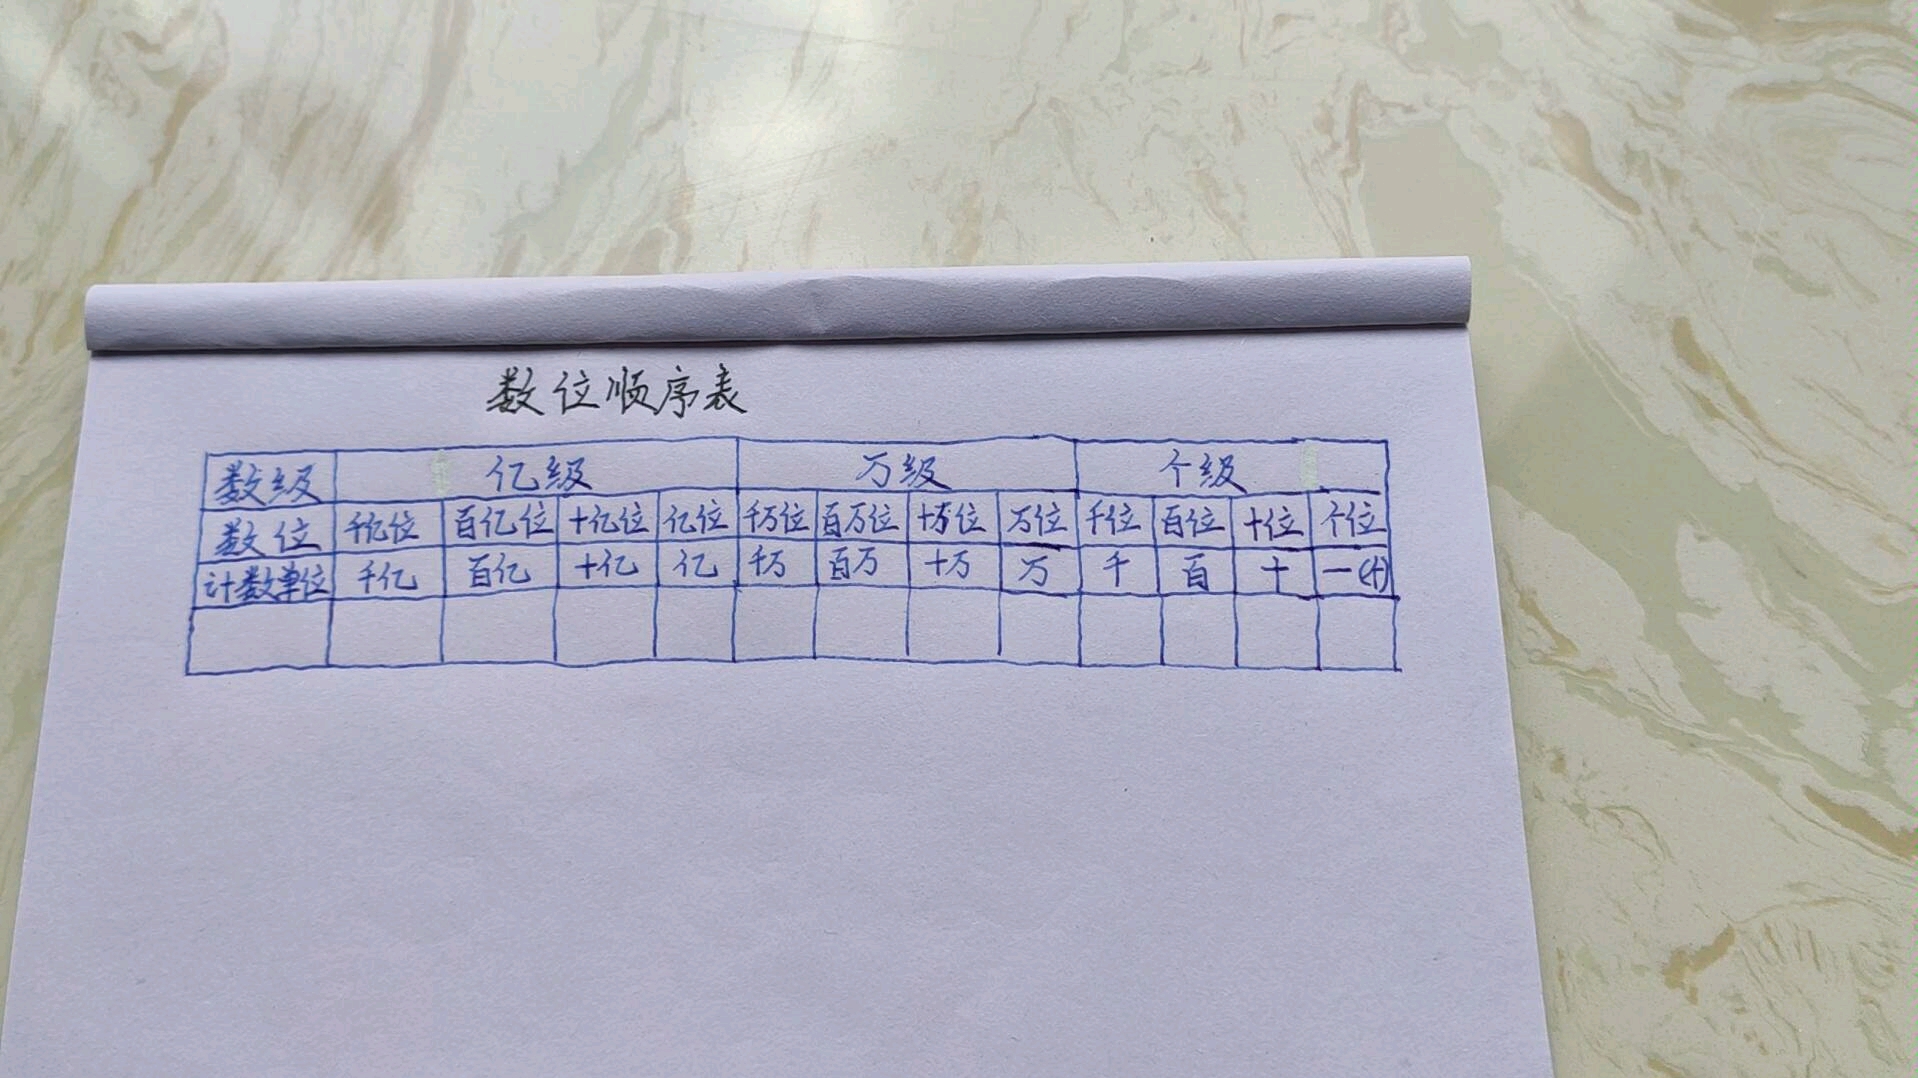 数位顺序表
数级 亿级 万级 个级
数位 千亿位 百亿位 十亿位 亿位 千万位 百万位 十万位 万位 千位 百位 十位 个位
计数单位 千亿 百亿 十亿 亿 千万 百万 十万 万 千 百 十 一(个)